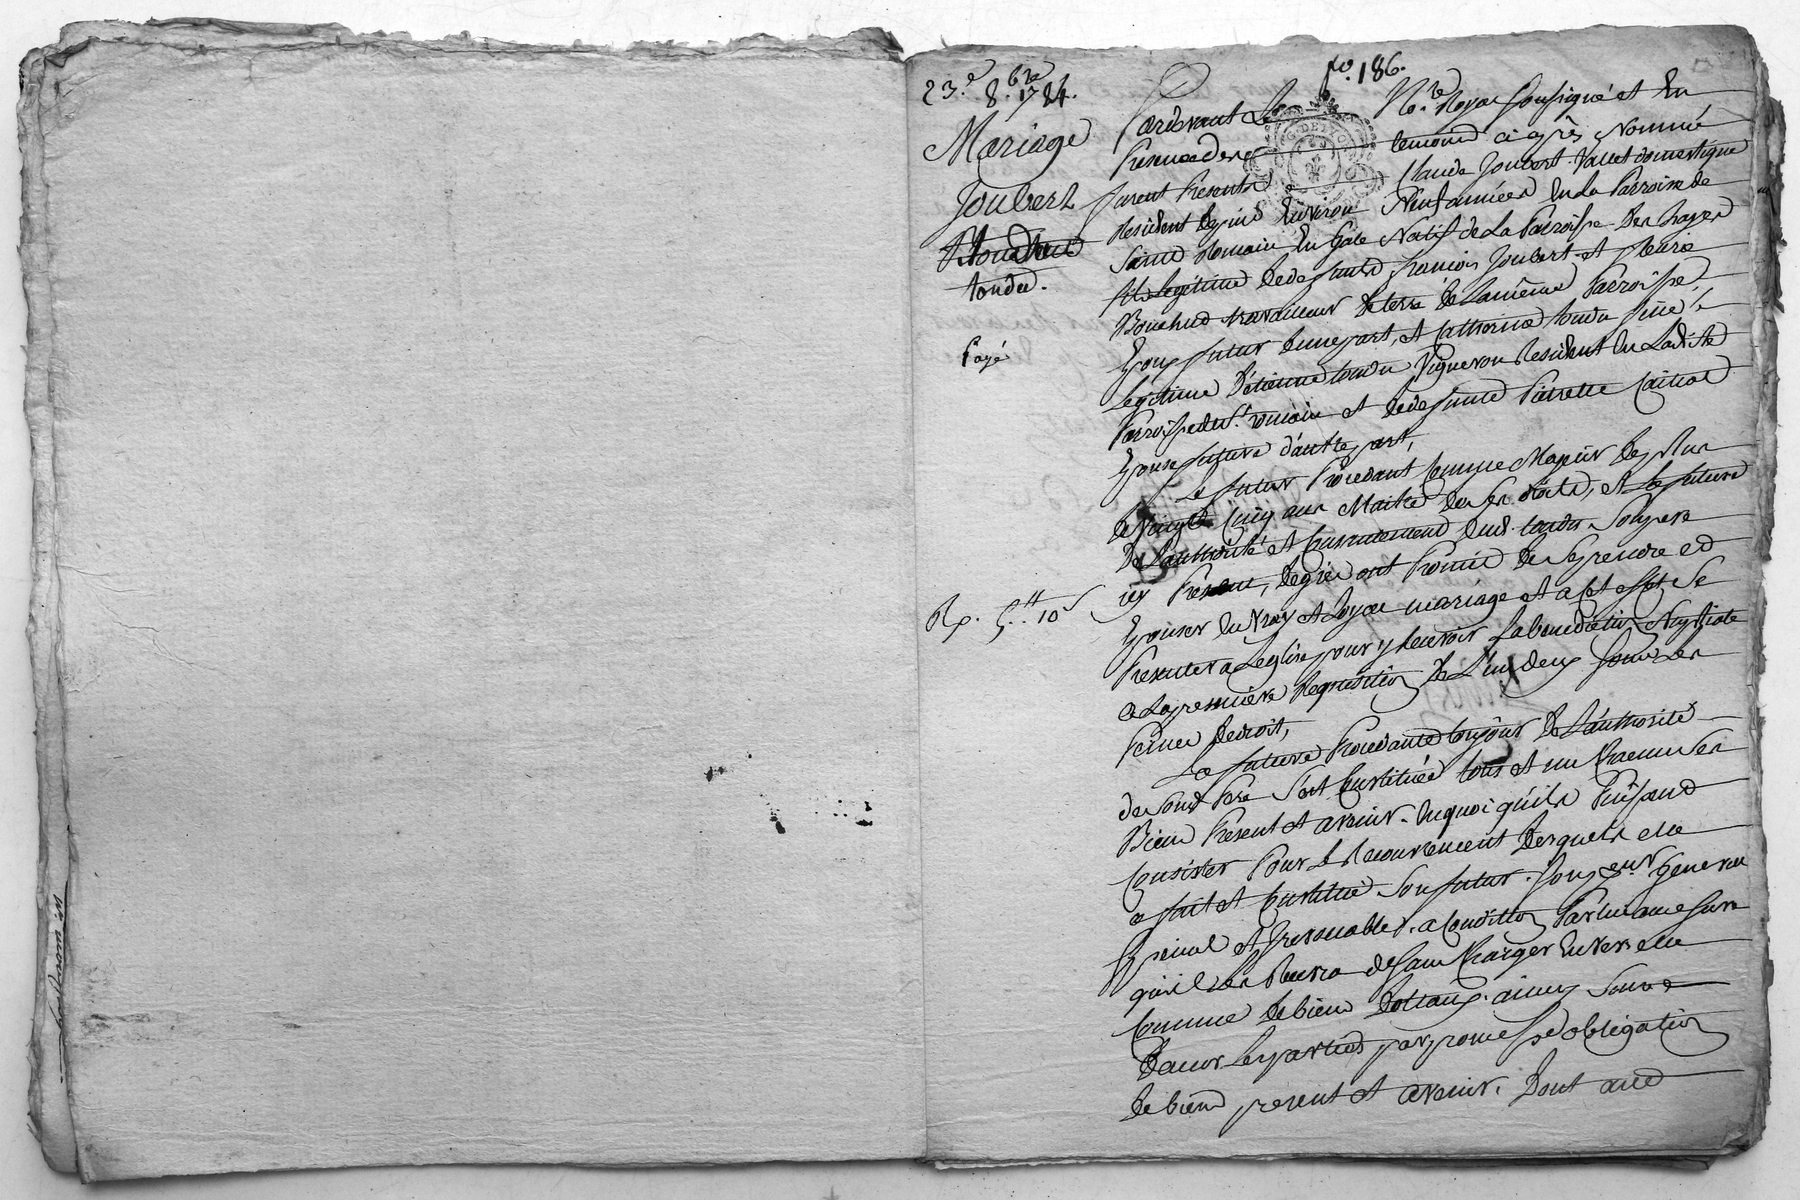 fo. 186.
23.e 8.bre 1784.
Mariage
Joubert
tondu.
Payé
Rp. 5.tt 10 s
Pardevant Le No.re Royal soussigné et En
Presence des temoins ci après Nommés
furent Presents Claude Joubert vallet domestique
Resident depuis Environ Neuf années En La Parroisse de
Saint Romain En Gale Natif de La Parroisse Des hayes
fils Legitime de defunts françois Joubert et pierrie
Bouchud travailleur de terre de La même Parroisse,
Epoux futur d'une part, et Catherine tondu fille
Legitime d'étienne tondu Vigneron Resident En Ladite
Parroisse de St. Romain et de defunte Pierrette
Epouse future d'autre part,
Le futur Procedant Comme Majeur De plus
de vingt Cinq ans Maitre de ses droits, et La future
De L'authorité et Consentement dud. tondu Son pere
icy Present, de gré ont Promis De Se prendre et
Epouser En vray et Loyal mariage et a cet effet Se
Presenter a L'eglise pour y Recevoir La benediction Nuptiale
a La premiere Requisition De L'un deux Sous Les
Peines de droit,
La future Procedante toujours De L'authorité
de sond. Pere S'est Constituée tous et un Chacun Ses
Biens Present et avenir. En quoi qu'ils Puissent
Consister Pour Le Recouvrement Desquels elle
a fait et Constitué Son futur. Son pr.eur General
Special et irrevocable, a Condition Par lui a mesure
qu'il Les Recevra de S'en Charger Envers elle
Comme de biens Dotaux. ainsy Convenu
D'accord Les parties par promesse obligation
de biens present et avenir. Dont acte